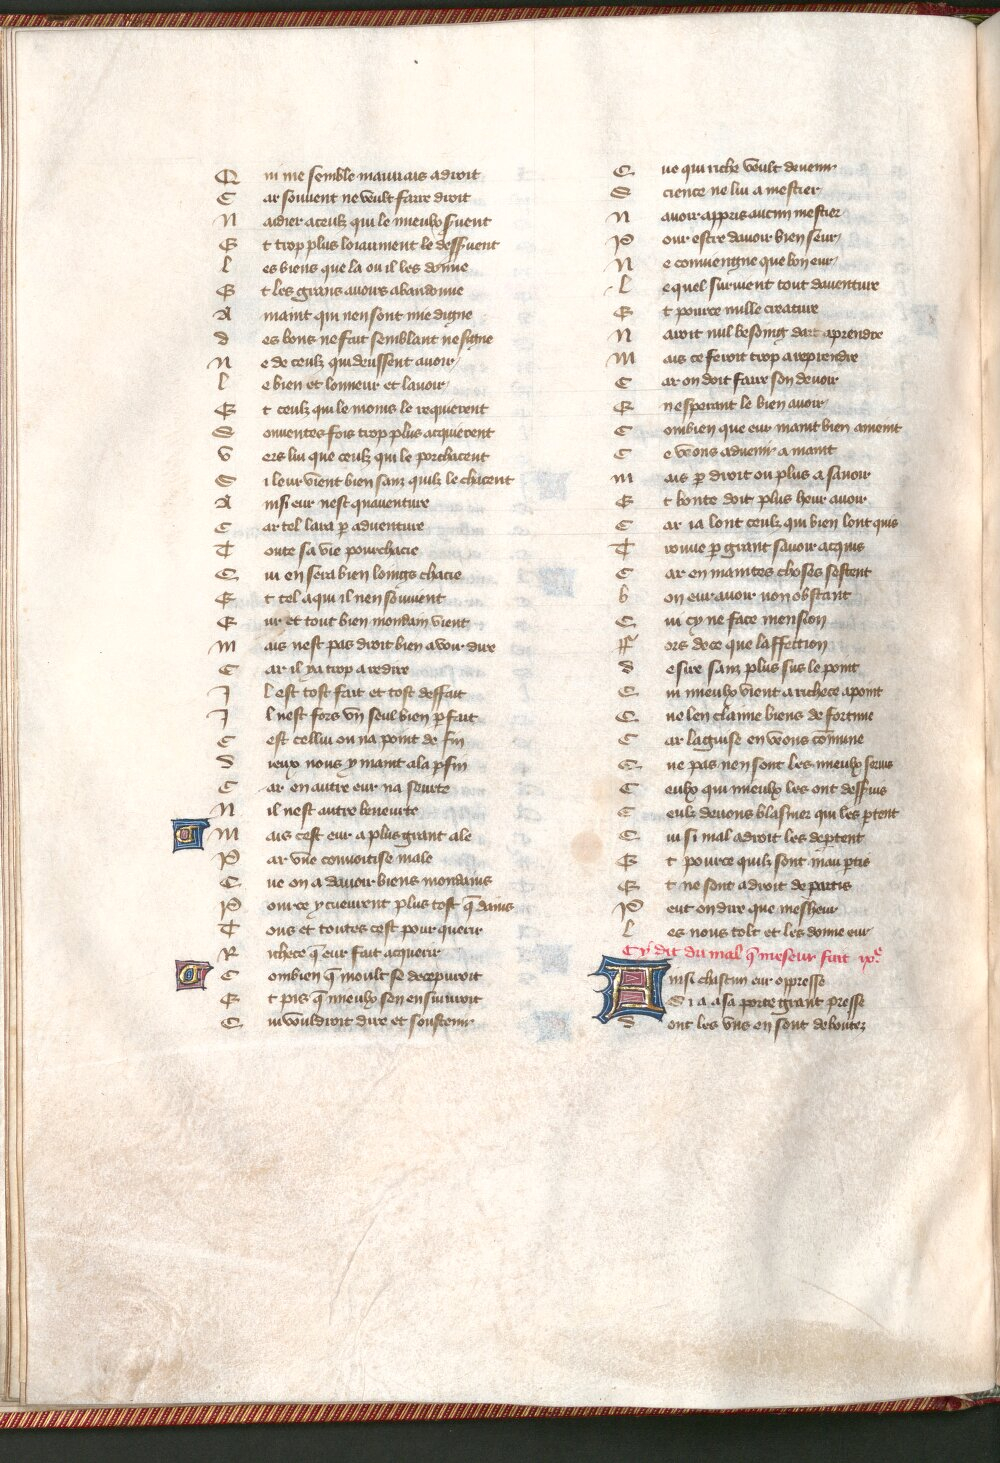 Qui me semble mauuais adroit
Car souuent ne veult faire droit
Naidier a ceulx qui le mieulx seruent
Et trop plus loiaument le desseruent
Les biens que la ou il les donne
Et les grans auoirs abandonne
A maint qui nen sont mie digne
des bons ne fait semblant ne signe
Ne de ceulz qui deussent auoir
Le bien et lonneur et lauoir
Et ceulz qui le moins le requierent
Souuentes fois trop plus acquierent
Vers lui que ceulz qui le porchacent
Si leur vient bien sanz quilz le chacent
Ainsi eur nest quauenture
Car tel lara p aduenture
Toute sa vie pourchacie
Qui en sera bien loings chacie
Et tel a qui il nen souuient
Eur et tout bien mondain vient
Mais nest pas droit bien a voir dire
Car il ya trop a redire
Il est tost fait et tost deffait
Il nest fors vn seul bien pfait
Cest cellui ou na point de fin
Dieux nous y maint a la pfin
Car en autre eur na seurte
Nil nest autre beneurte
Mais cest eur a plus grant ale
Par vne conuoitise male
Que on a dauoir biens mondains
Pour ce y cueurent plus tost q dains
Tous et toutes cest pour querir
Richece q eur fait acquerir
Combien q moult se decepuroit
Et pis q mieulx sen ensuiuroit
Qui vouldroit dire et soustenir
Que qui riche veult deuenir
Science ne lui a mestier
Nauoir appris aucun mestier
Pour estre dauoir bien seur
Ne conuiengne que bon eur
Lequel suruient tout dauenture
Et pource nulle creature
Nauroit nul besoing dart aprendre
Mais ce seroit trop a reprendre
Car on doit faire son deuoir
En esperant le bien auoir
Combien que eur maint bien amaint
Ce veons aduenir a maint
Mais p droit ou plus a sauoir
Et bonte doit plus heur auoir
Car ia lont ceulz qui bien lont quis
Trouue p grant sauoir acquis
Car en maintes choses sestent
bon eur auoir non obstant
Qui cy ne face mension
Fors de ce que laffection
desire sanz plus sus le point
Qui mieulx vient a richece a point
Que len claime biens de fortune
Car la guise en veons comune
Que pas nen sont les mieulx seruis
Ceulx qui mieulx les ont desseruis
Ceulz deuons blasmer qui les ptent
Qui si mal a droit les deptent
Et pource quilz sont mau ptis
Et ne sont a droit departis
Peut on dire que mesheur
Les nous tolt et les donne eur
Cy dit du mal q meseur fait ixe
Ainsi chascun eur oppresse
Si a a sa porte grant presse
Dont les vns en sont deboutez